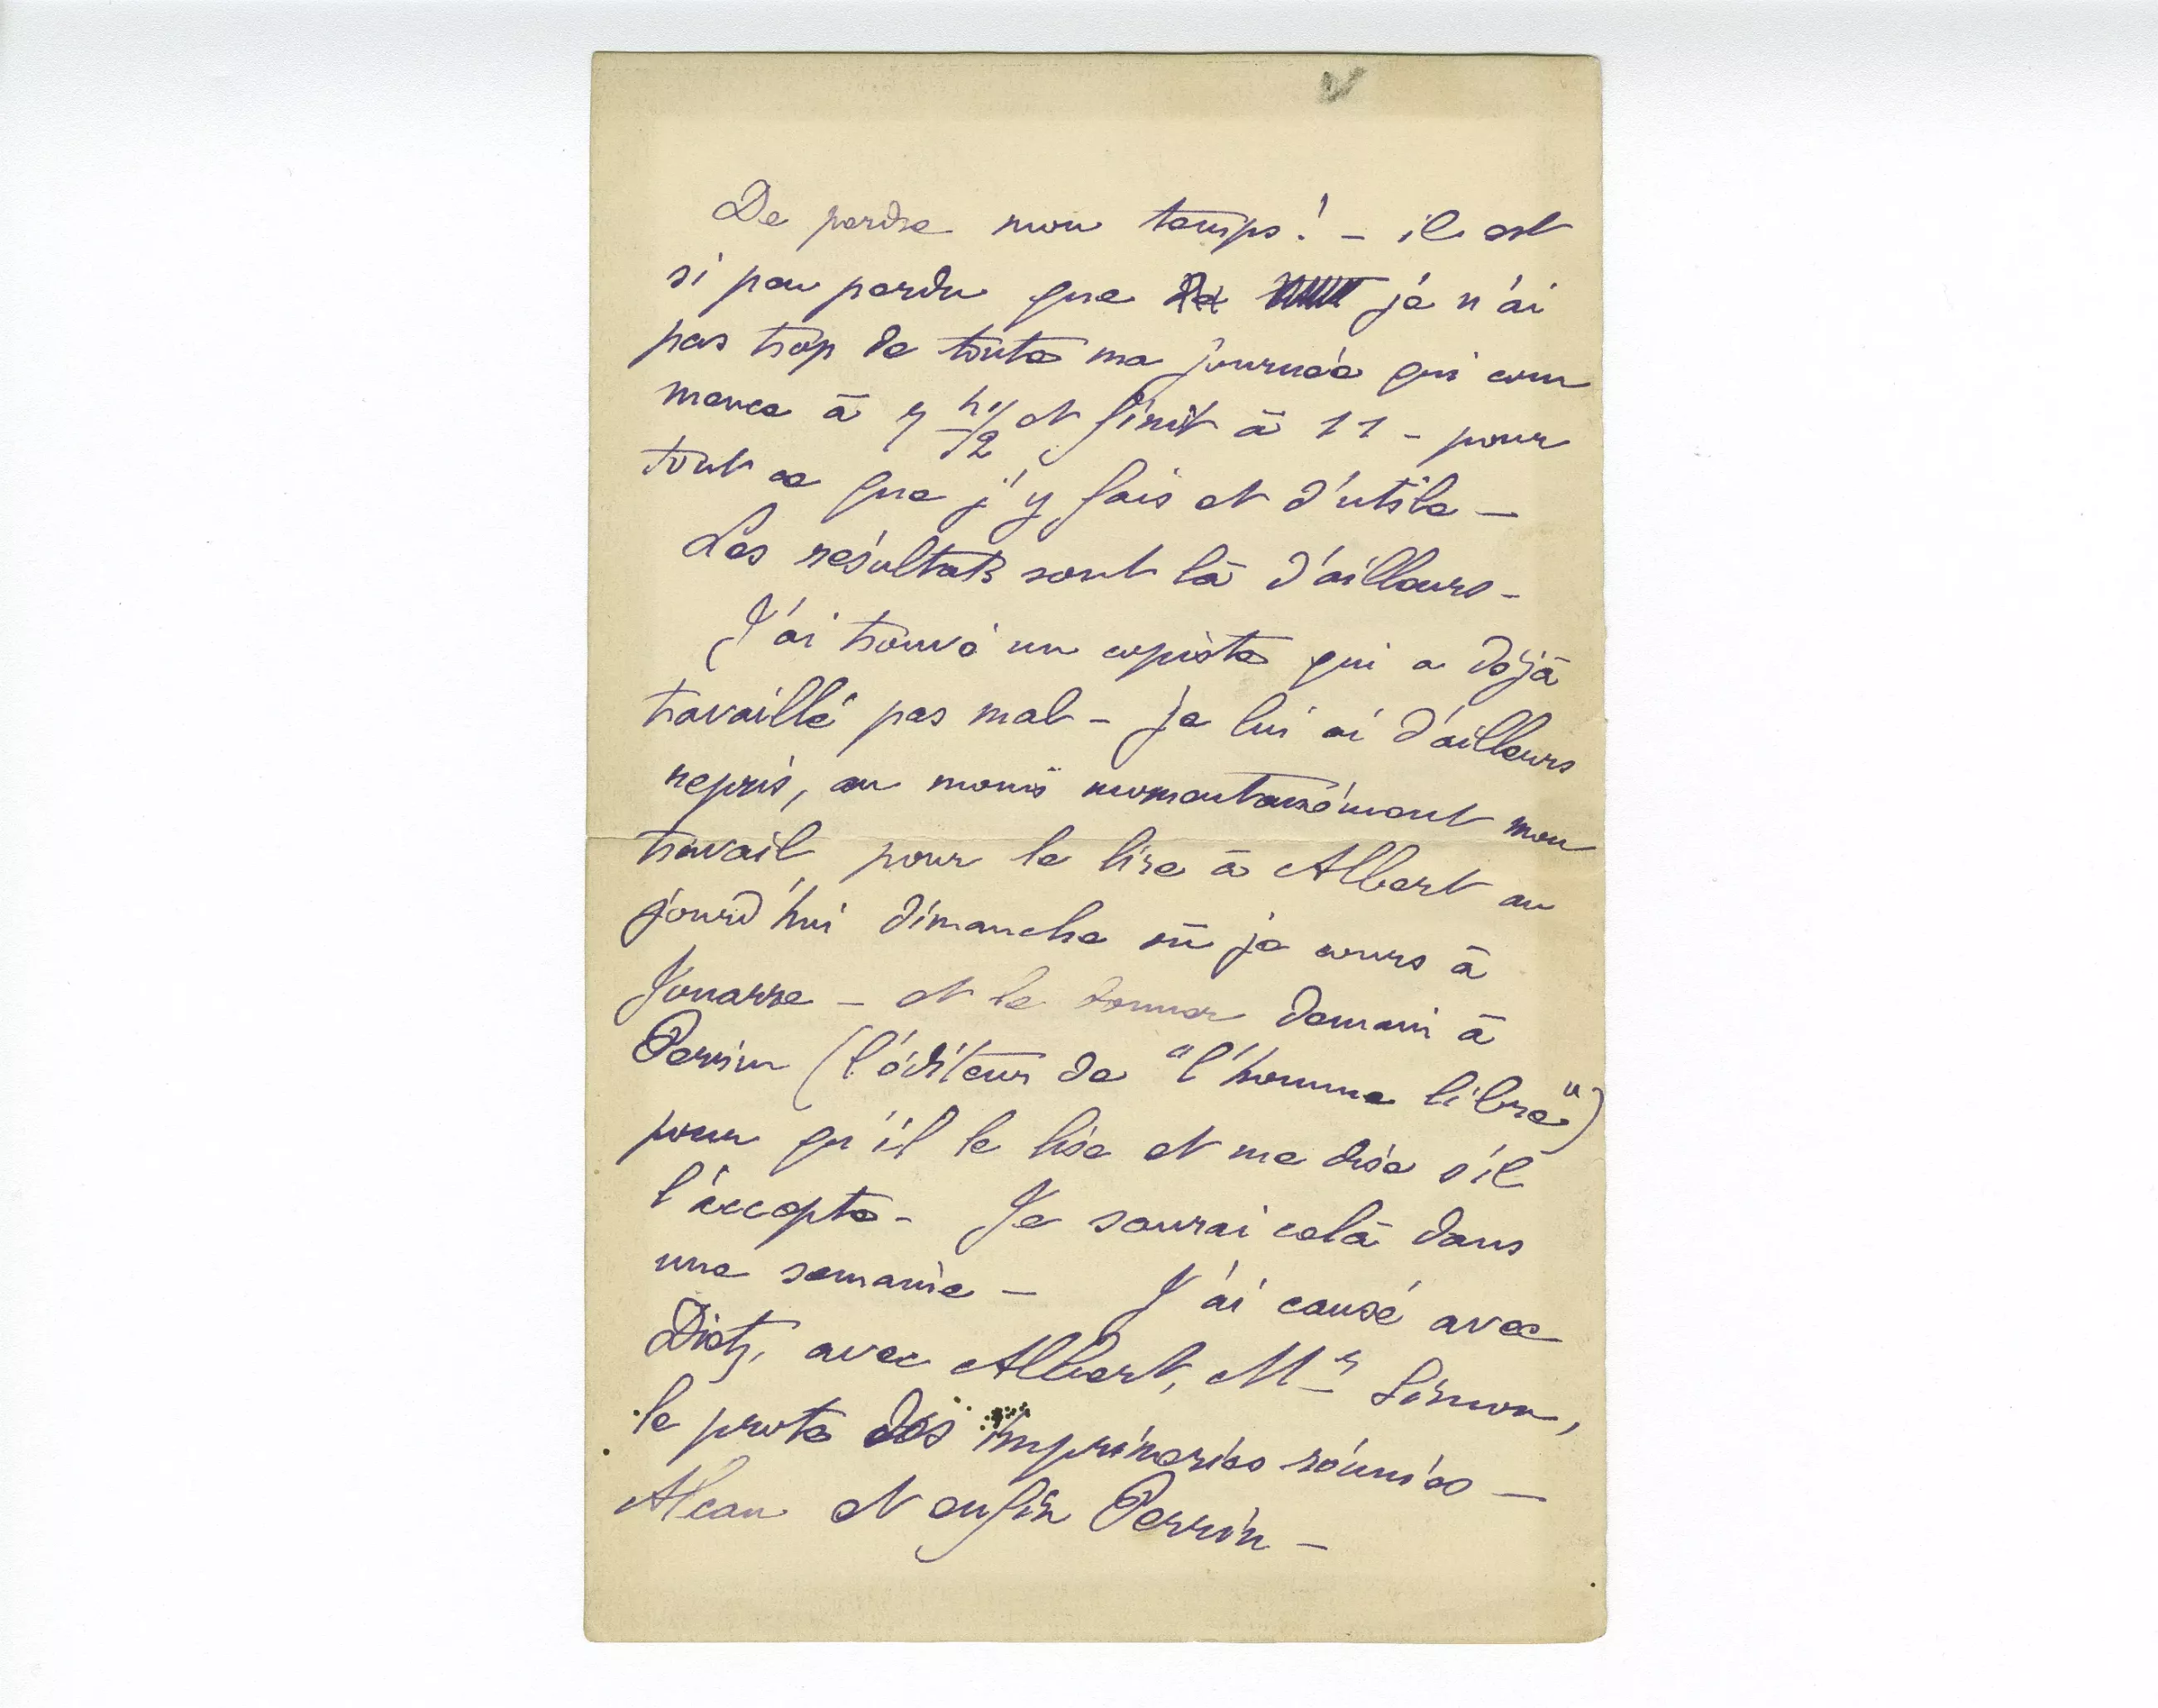 De perdre mon temps! – il est
si peu perdu que je n'ai
pas trop de toute ma journée qui com
mence à 7 h 1/2 et finit à 11 – pour
tout ce que j'y fais et d'utile –
Les résultats sont là d'ailleurs –
J'ai trouvé un copiste qui a déjà
travaillé pas mal – je lui ai d'ailleurs
repris, au moins momentanément mon
travail pour le lire à Albert au
jourd'hui dimanche où je cours à
Jouarre – et le donner demain à
Perrin (l'éditeur de "l'homme libre")
pour qu'il le lise et me dise s'il
l'accepte – Je saurai celà dans
une semaine – J'ai causé avec
Dietz, avec Albert, Mr Simon,
le prote des imprimeries réunies –
Alcan et enfin Perrin –